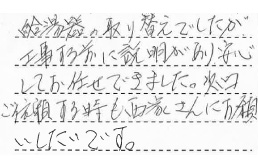 給湯器の取り替えでしたが
工事する前に説明があり安心
してお任せできました。次回
ご依頼する時も西家さんにお願
いしたいです。